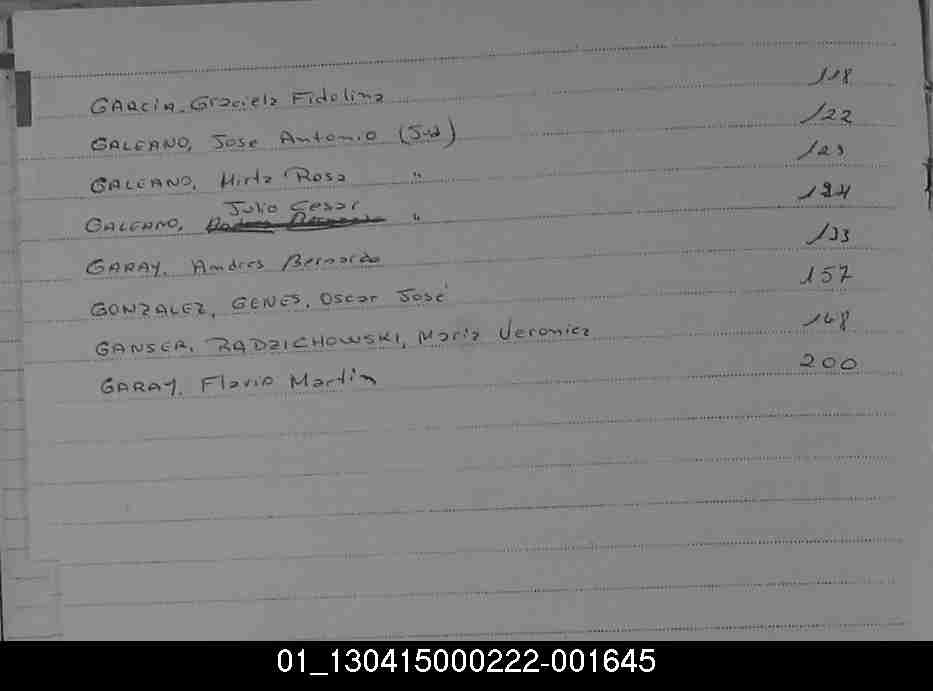 GARCIA, Graciela Fidelina 118
GALEANO, Jose Antonio (Jud) 122
GALEANO, Mirta Rosa " 123
GALEANO, Julio Cesar " 124
GARAY, Andres Bernardo 133
GONZALEZ, GENES, Oscar José 157
GANSER, RADZICHOWSKI, Maria Veronica 148
GARAY, Flavio Martin 200
01_130415000222-001645